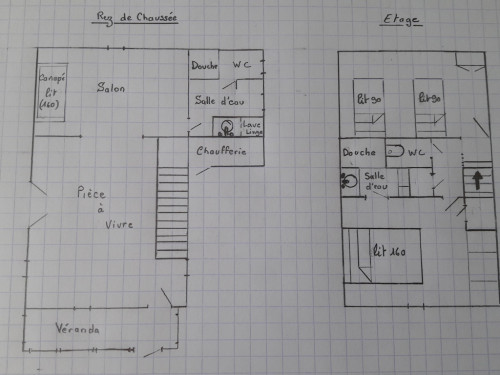 Rez de Chaussée
Canapé
lit
(160)
Salon
Douche
WC
Salle d'eau
Lave
Linge
Chaufferie
Pièce
à
Vivre
Véranda
Etage
lit 90
lit 90
Douche
WC
Salle
d'eau
lit 160